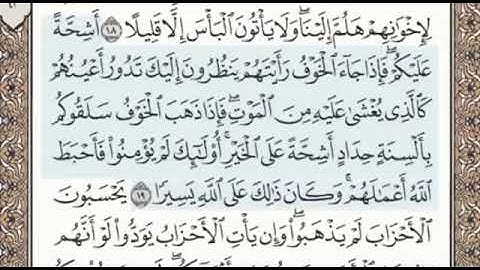 لِإِخْوَٰنِهِمْ هَلُمَّ إِلَيْنَا ۖ وَلَا يَأْتُونَ ٱلْبَأْسَ إِلَّا قَلِيلًا ١٨ أَشِحَّةً
عَلَيْكُمْ ۖ فَإِذَا جَآءَ ٱلْخَوْفُ رَأَيْتَهُمْ يَنظُرُونَ إِلَيْكَ تَدُورُ أَعْيُنُهُمْ
كَٱلَّذِى يُغْشَىٰ عَلَيْهِ مِنَ ٱلْمَوْتِ ۖ فَإِذَا ذَهَبَ ٱلْخَوْفُ سَلَقُوكُم
بِأَلْسِنَةٍ حِدَادٍ أَشِحَّةً عَلَى ٱلْخَيْرِ ۚ أُو۟لَـٰٓئِكَ لَمْ يُؤْمِنُوا۟ فَأَحْبَطَ
ٱللَّهُ أَعْمَـٰلَهُمْ ۚ وَكَانَ ذَٰلِكَ عَلَى ٱللَّهِ يَسِيرًا ١٩ يَحْسَبُونَ
ٱلْأَحْزَابَ لَمْ يَذْهَبُوا۟ ۖ وَإِن يَأْتِ ٱلْأَحْزَابُ يَوَدُّوا۟ لَوْ أَنَّهُم